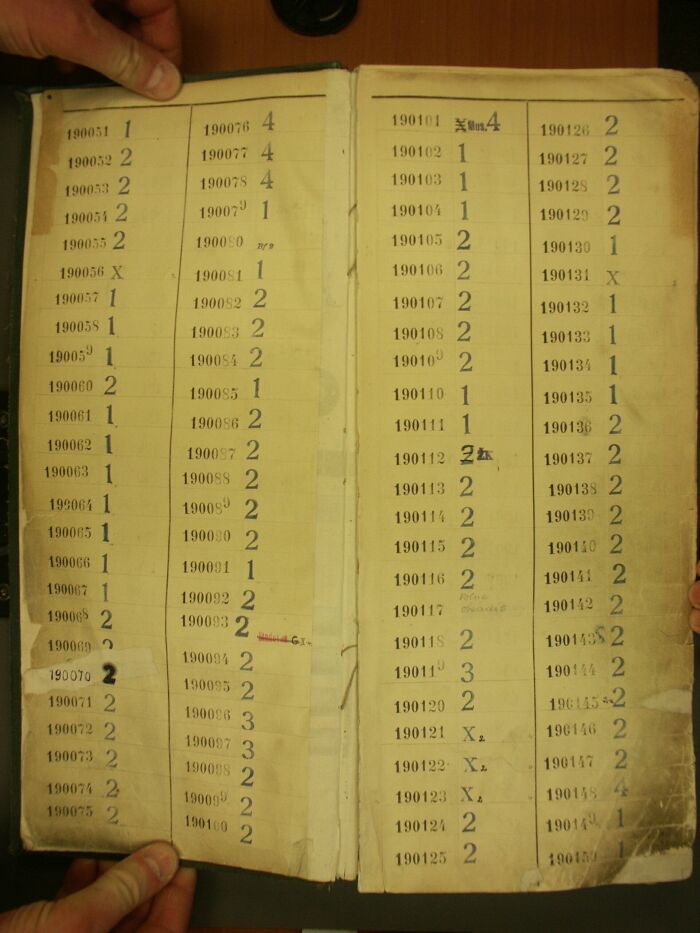 190051 1
190052 2
190053 2
190054 2
190055 2
190056 X
190057 1
190058 1
190059 1
190060 2
190061 1
190062 1
190063 1
190064 1
190065 1
190066 1
190067 1
190068 2
190069 2
190070 2
190071 2
190072 2
190073 2
190074 2
190075 2
190076 4
190077 4
190078 4
190079 1
190080
190081 1
190082 2
190083 2
190084 2
190085 1
190086 2
190087 2
190088 2
190089 2
190090 2
190091 1
190092 2
190093 2
190094 2
190095 2
190096 3
190097 3
190098 2
190099 2
190100 2
190101 X Mus. 4
190102 1
190103 1
190104 1
190105 2
190106 2
190107 2
190108 2
190109 2
190110 1
190111 1
190112 2
190113 2
190114 2
190115 2
190116 2
190117
190118 2
190119 3
190120 2
190121 X 2
190122 X 2
190123 X 2
190124 2
190125 2
190126 2
190127 2
190128 2
190129 2
190130 1
190131 X
190132 1
190133 1
190134 1
190135 1
190136 2
190137 2
190138 2
190139 2
190140 2
190141 2
190142 2
190143 2
190144 2
190145 2
190146 2
190147 2
190148 4
190149 1
190150 1